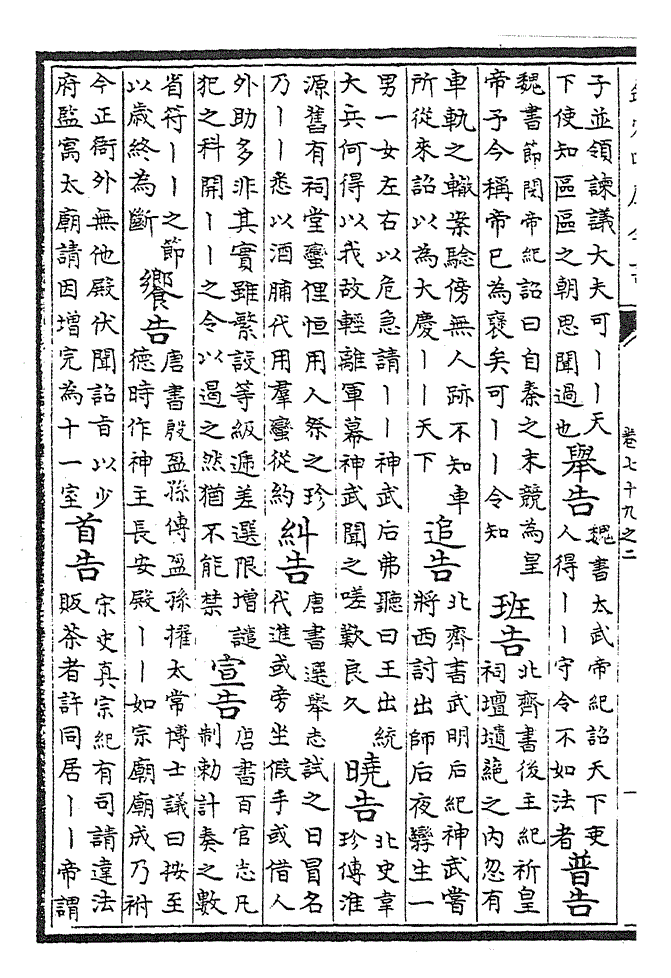 卷七十九之二
一
子並領諫議大夫可丨丨天
下使知區區之朝思聞過也
舉告
魏書太武帝紀詔天下吏
人得丨丨守令不如法者
普告
魏書節閔帝紀詔曰自秦之末競為皇
帝予今稱帝已為褒矣可丨丨令知
班告
北齊書後主紀祈皇
祠壇壝蕝之內忽有
車軌之轍案驗傍無人跡不知車
所從來詔以為大慶丨丨天下
追告
北齊書武明后紀神武嘗
將西討出師后夜孿生一
男一女左右以危急請丨丨神武后弗聽曰王出統
大兵何得以我故輕離軍幕神武聞之嗟歎良久
曉告
北史韋
珍傳淮
源舊有祠堂蠻俚恒用人祭之珍
乃丨丨悉以酒脯代用羣蠻從約
糾告
唐書選舉志試之日冒名
代進或旁坐假手或借人
外助多非其實雖繁設等級遞差選限增譴
犯之科開丨丨之令以遏之然猶不能禁
宣告
唐書百官志凡
制勅計奏之數
省符丨丨之節
以歲終為斷
饗告
唐書殷盈孫傳盈孫擢太常博士議曰按至
德時作神主長安殿丨丨如宗廟廟成乃祔
今正衙外無他殿伏聞詔旨以少
府監寓太廟請因增完為十一室
首告
宋史真宗紀有司請違法
販茶者許同居丨丨帝謂